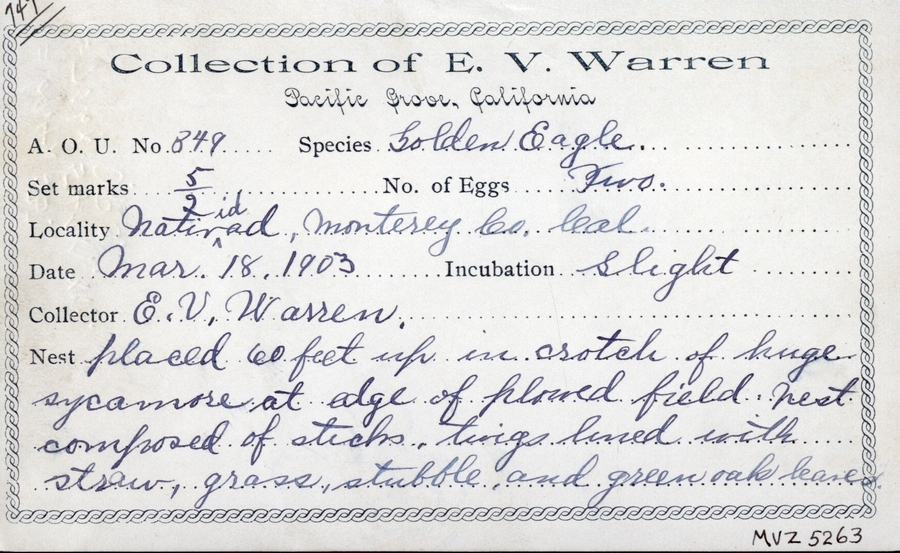 747
Collection of E. V. Warren
Pacific Grove, California
A. O. U. No. 349 Species Golden Eagle.
Set marks 5/2 No. of Eggs Two.
Locality Nativ^idad, Monterey Co. Cal.
Date Mar. 18. 1903 Incubation Slight
Collector E. V. Warren.
Nest placed 60 feet up in crotch of huge
sycamore at edge of plowed field. Nest
composed of sticks, twigs lined with
straw, grass, stubble, and green oak leaves.
MVZ 5263